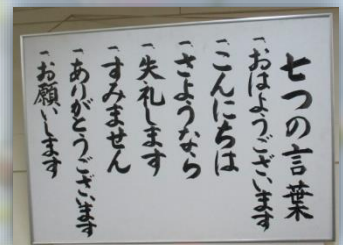 七つの言葉
一、おはようございます
一、こんにちは
一、さようなら
一、失礼します
一、すみません
一、ありがとうございます
一、お願いします